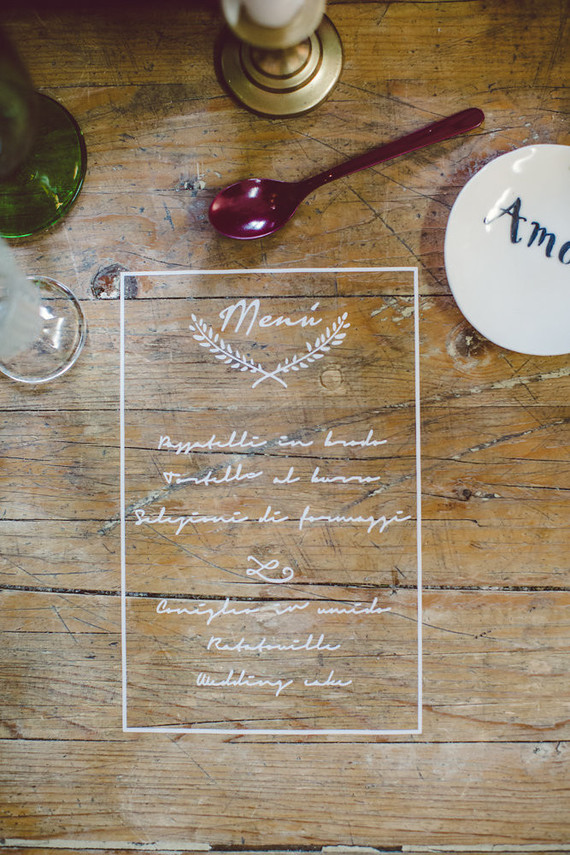 Menú
Passatelli in brodo
Tortelli al burro
Selezioni di formaggi
Coniglio in umido
Ratatouille
Wedding cake
Amo